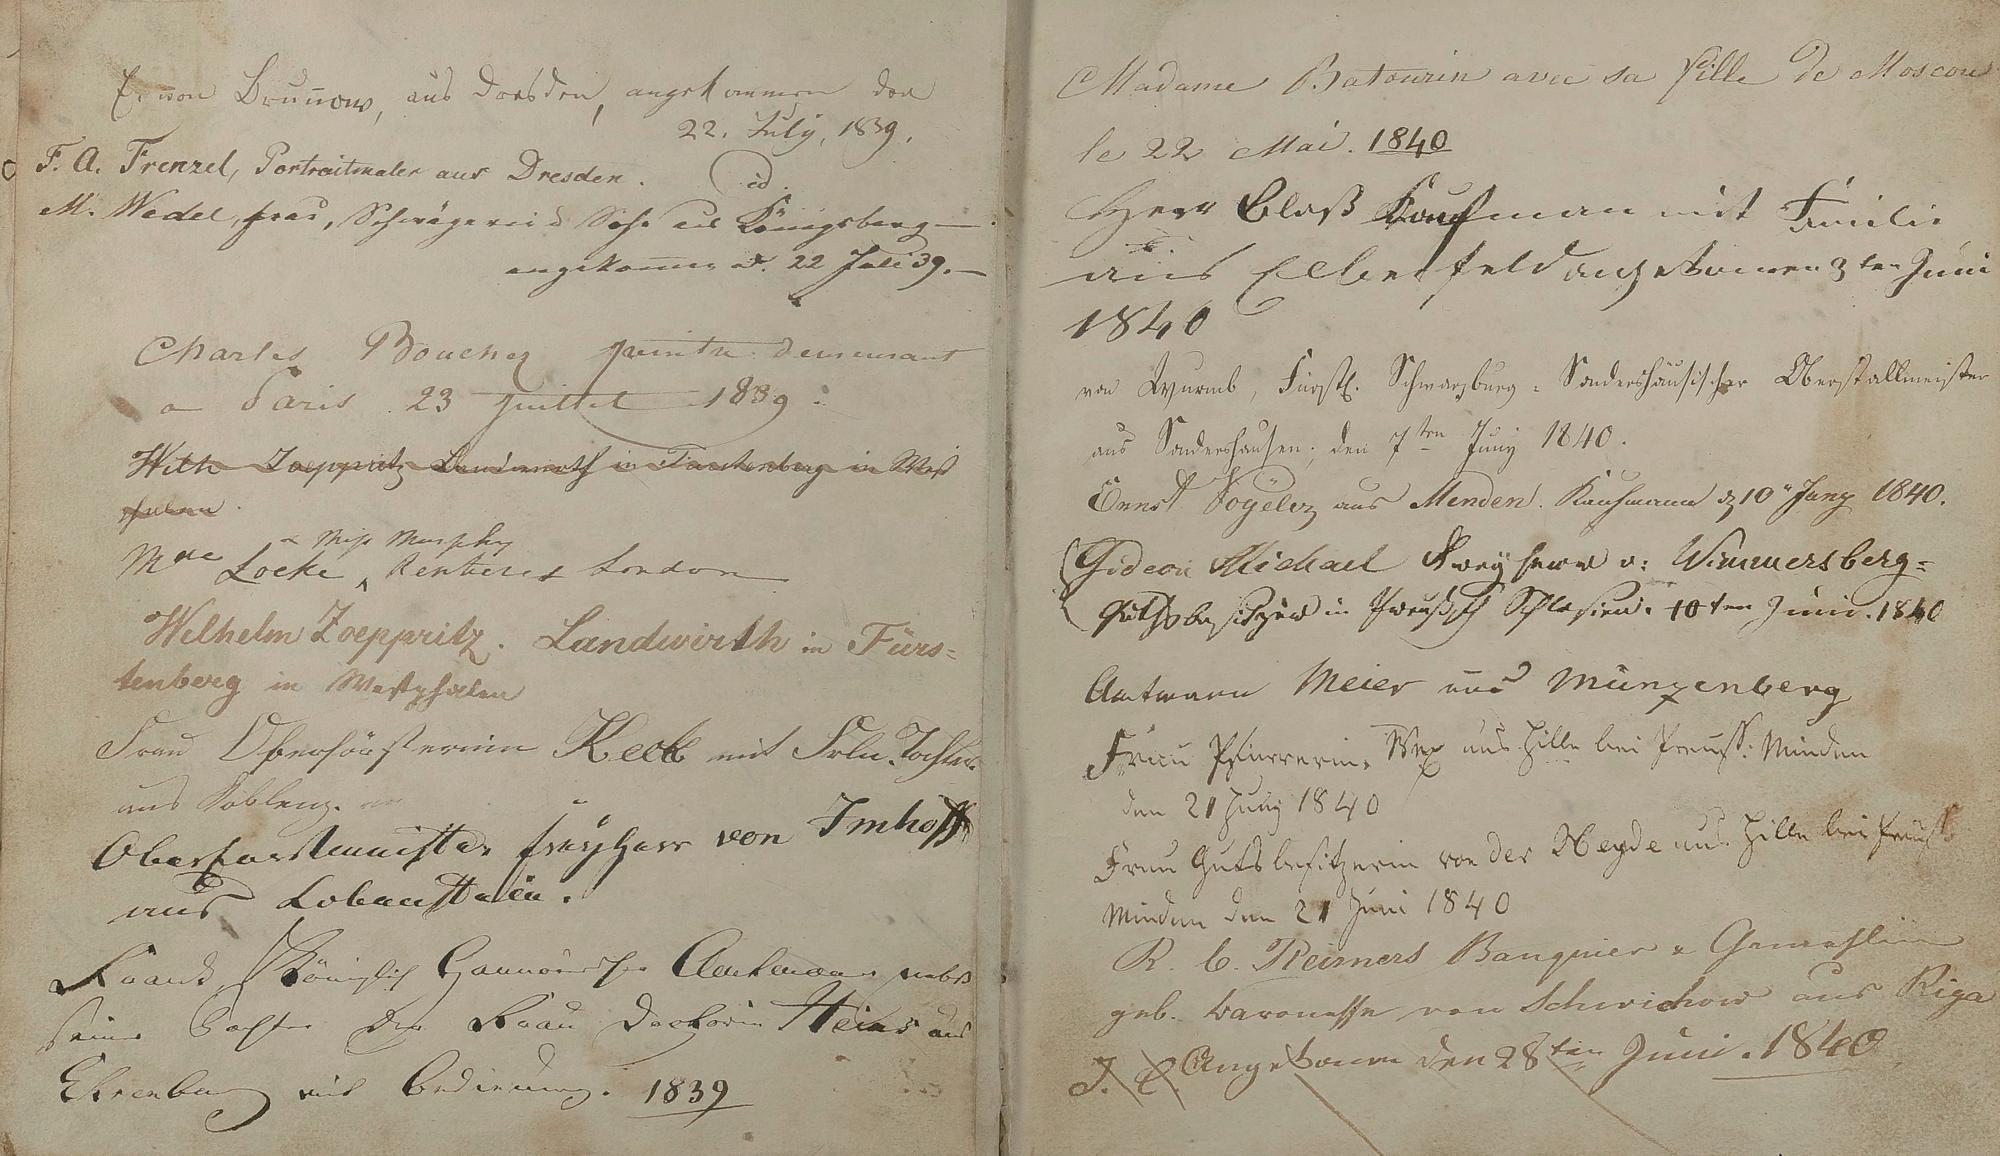 E. von Brunnow, aus Dresden, angekommen den
22. July, 1839.
F. A. Frenzel, Portraitmaler aus Dresden. id.
M. Wedel, Frau, Schwägerin & Sohn aus Königsberg —
angekommen d. 22 Juli 39. —
Charles Bouchez peintre demeurant
a Paris 23 Juillet 1839
Wilh Zoeppritz Landwirth in in West
phalen.
& Miss Murphy
Mde Locke Rentieres London
Wilhelm Zoeppritz. Landwirth in Fürs=
tenberg in Westphalen
Frau Oberförsterinn Keck mit Frln. Tochter
aus Koblenz.
Oberforstmeister Freyherr von Imhoff
aus Lobenstein.
Königlich Hannöverscher Amtmann nebst
seiner Tochter der Frau Doctorin aus
mit Bedienung. 1839
Madame Batourin avec sa fille de Moscou
le 22 Mai. 1840
Herr Blaß Kaufman mit Familie
aus Elberfeld angekommen 3ten Juni
1840
von Wurmb, Fürstl. Schwarzburg-Sondershäusischer Oberstallmeister
aus Sondershausen, den 7ten Juny 1840.
Ernst aus Menden. Kaufmann d 10 Juny 1840.
Gideon Michael Freyherr v: Wimmersberg=
Guthsbesitzer in Preußsch Schlesien. 10ten Juni. 1840
Amtmann Meier aus Münzenberg
Frau Pfarrerin aus Hille bei Preuss. Minden
den 21 Juny 1840
Frau Gutsbesitzerin von der Heyde aus Hille bei Preuß.
Minden den 21 Juni 1840
R. C. Reimers Banquier & Gemahlin
geb. Baronesse von Schwichow aus Riga
J. C. Angekomen den 28ten Juni. 1840